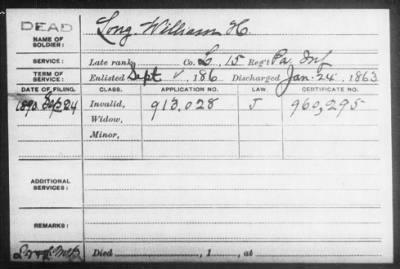 DEAD
Long, William H.
NAME OF SOLDIER:
SERVICE: Late rank, Co. L, 15 Reg't Pa. Inf
TERM OF SERVICE: Enlisted Sept , 186 Discharged Jan. 24, 1863
DATE OF FILING. CLASS. APPLICATION NO. LAW. CERTIFICATE NO.
1890 24 Invalid, 913,028 J 960,295
Widow,
Minor,
ADDITIONAL SERVICES:
REMARKS:
Died , 1 , at